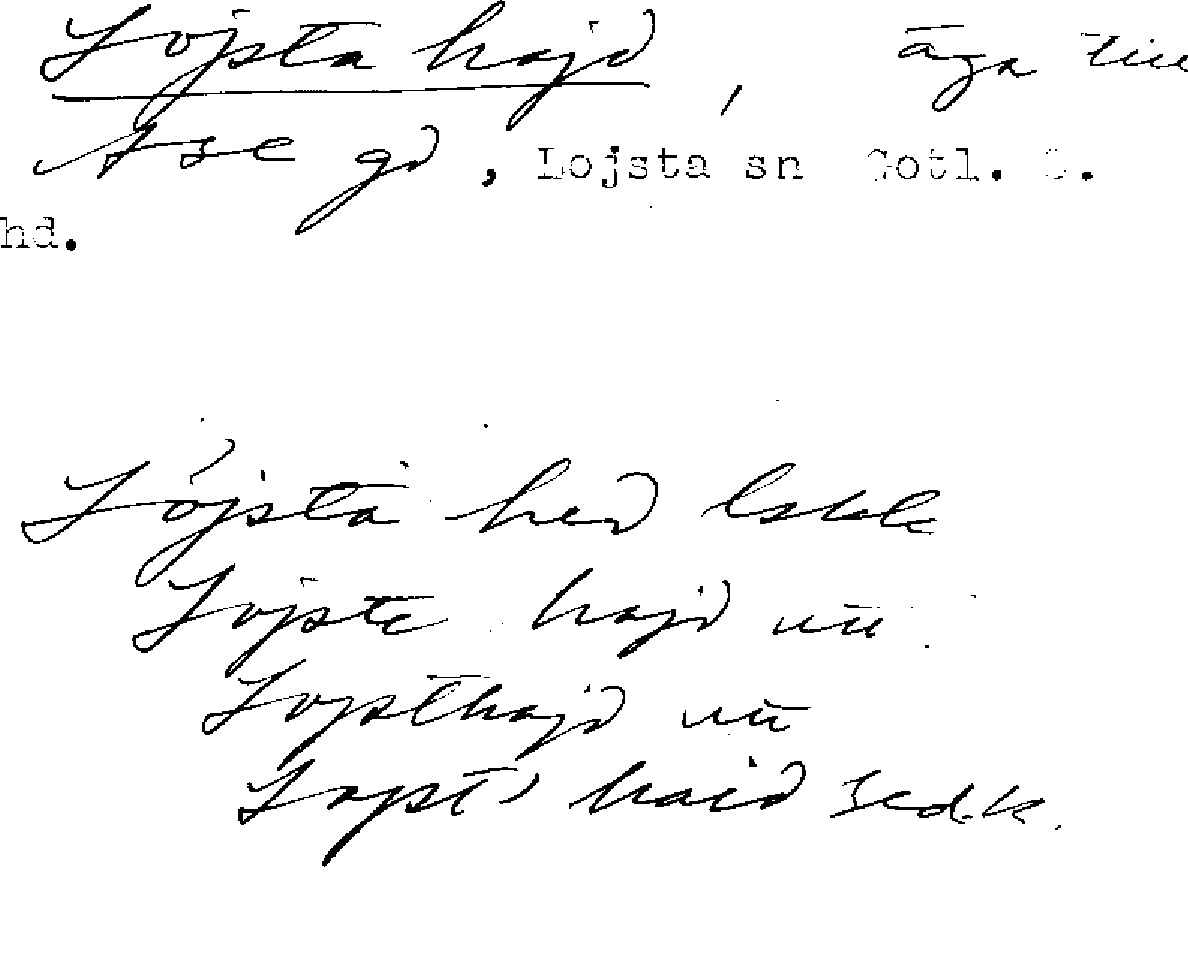 Lojsta hajd, äga till
Ase gd, Lojsta sn Gotl. S.
hd.
Lojsta hed lskk
Lojste hajd uü
Lojsthajd uü
Lojst' haid sedk.